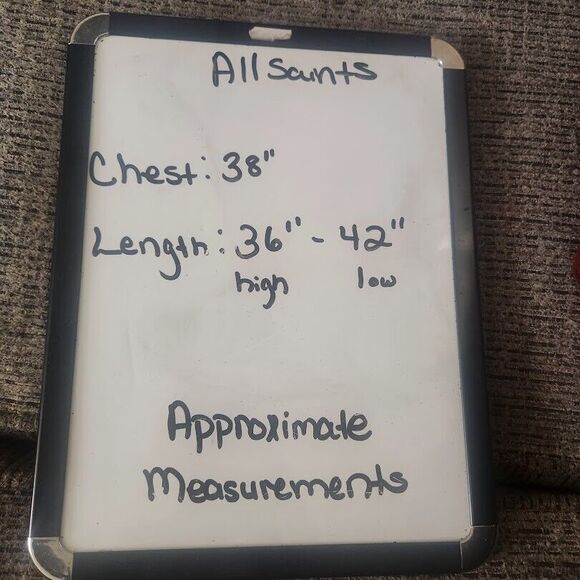 All Saints
Chest: 38"
Length: 36" - 42"
high low
Approximate
Measurements